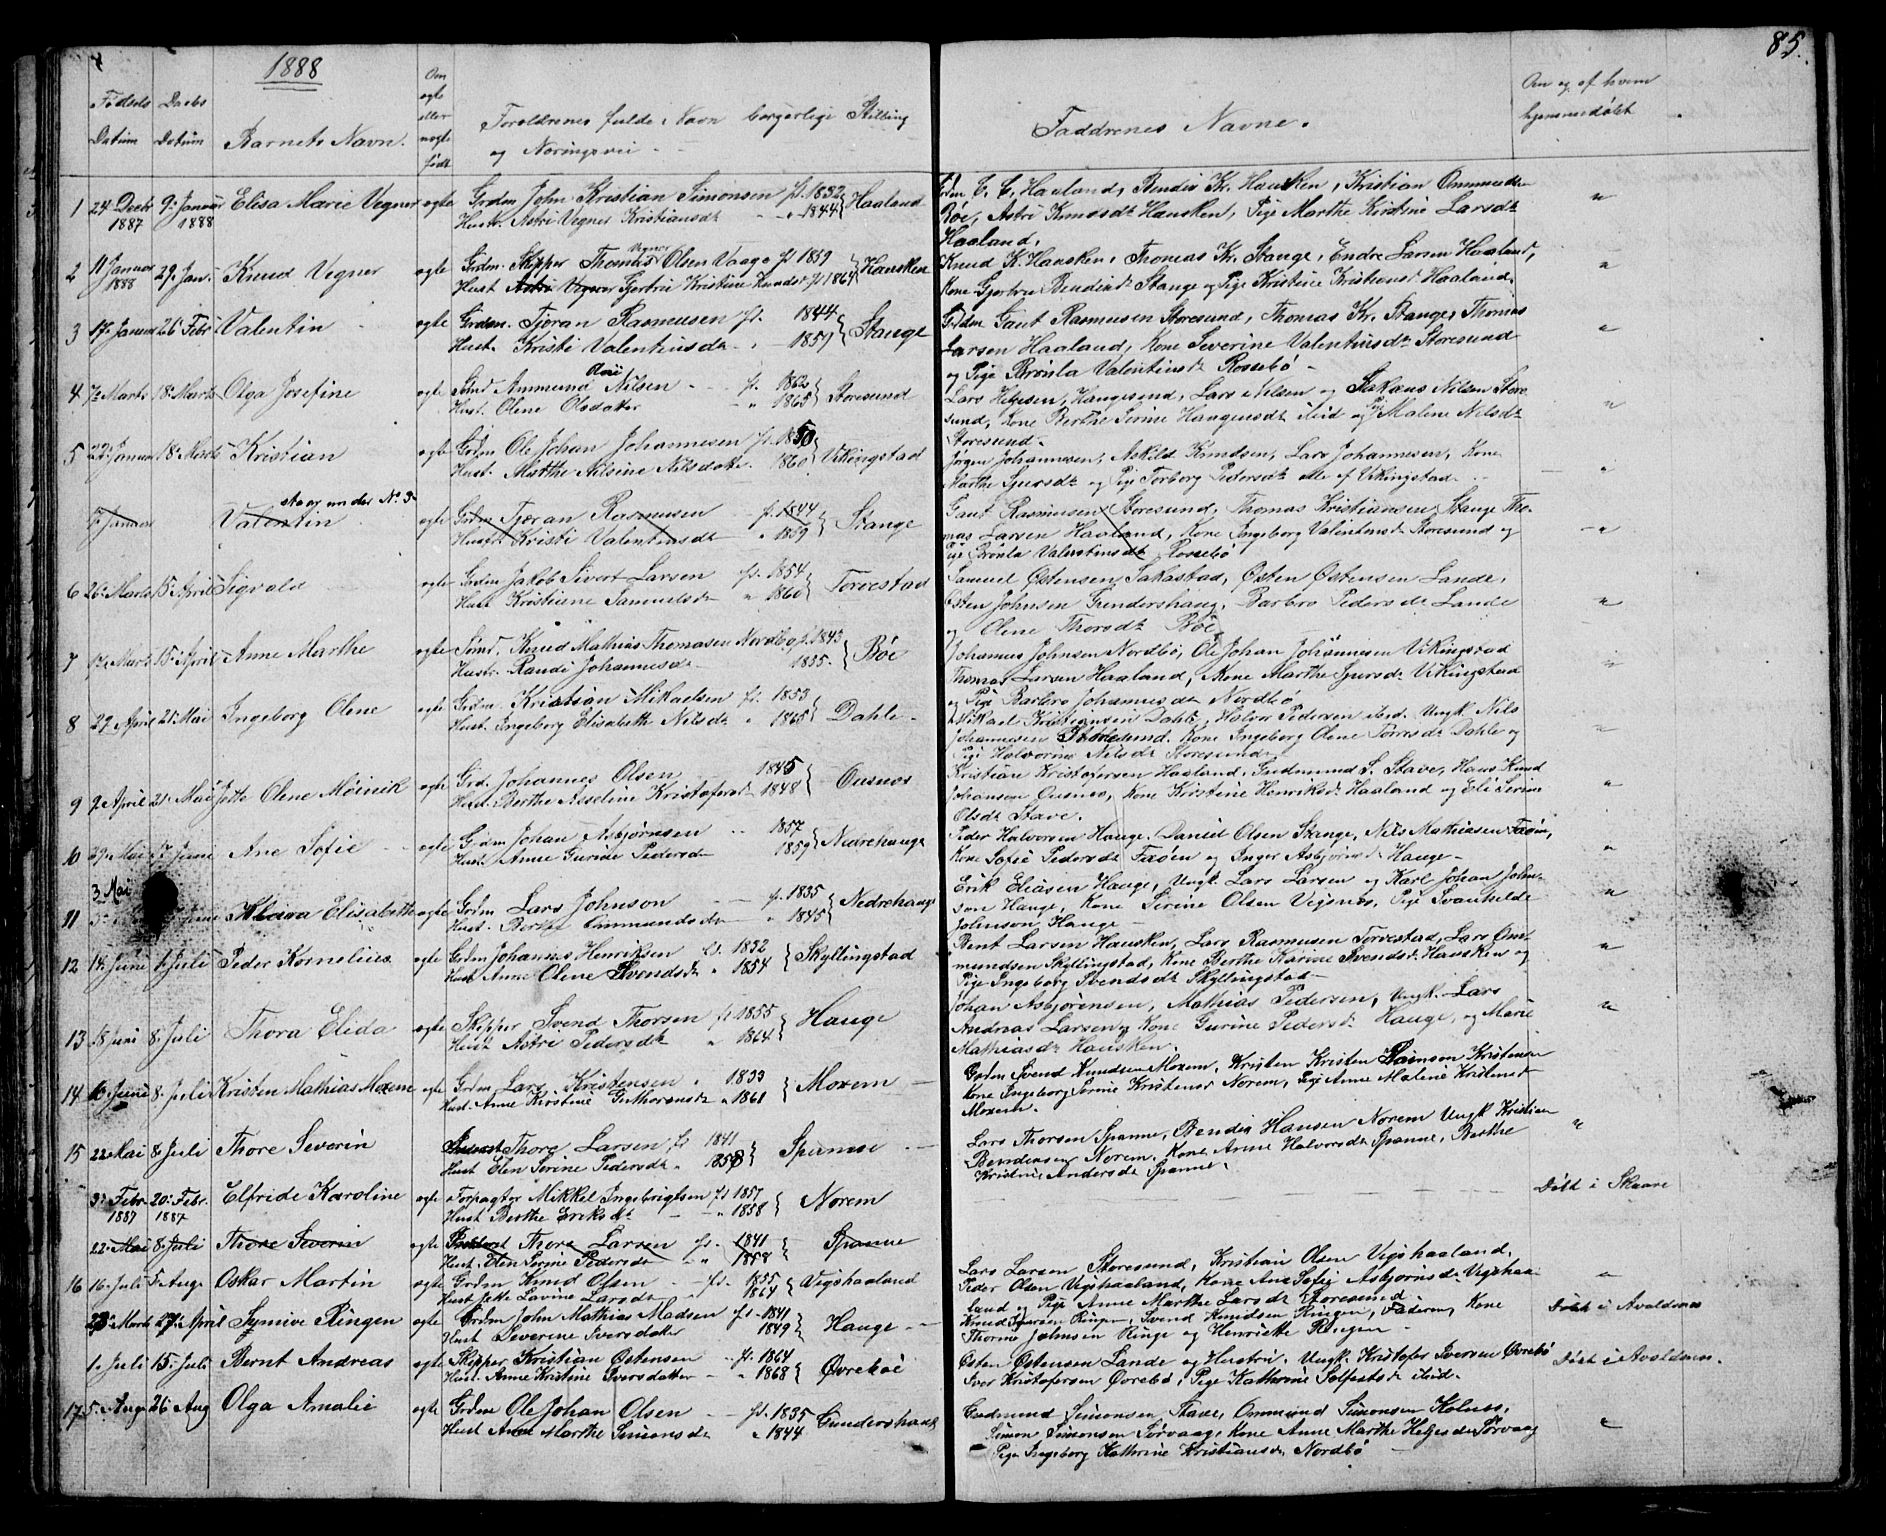 85.
1888
Fødsels Datum
Daabs Datum
Barnets Navn.
Om ægte eller uægte født
Forældrenes fulde Navn borgerlige Stilling
og Næringsvei
Faddrenes Navne.
Om og af hvem hjemmedøbt
1 24 Decbr 1887 9. Januar 1888 Elisa Marie Vegner ægte Grdm. John Kristian Simonsen f. 1832 Haaland
Hustr. Astri Vegner Kristiansdt " 1844
Grdm C. C. Haaland, Bendix Kr. Hausken, Kristian Ommundsen
Bøe, Astri Knudsdt Hausken, Pige Marthe Kirstine Larsdt
Haaland. "
2 11 Januar 1888 29. Jan. Knud Vegner ægte Grdm. Skipper Thomas Vegner Olsen Vaage f. 1859 Hausken
Hust Astri Vegner Gjertru Kristine Knudsdt f. 1864
Knud K. Hausken, Thomas Kr. Stange, Endre Larsen Haaland,
Kone Gjertru Bendixdt Stange og Pige Kristine Kristiansdt Haaland. "
3 17. Januar 26 Febr Valentin ægte Grdm. Tjøran Rasmusen f. 1844 Stange
Hust. Kristi Valentinsdt " 1859
Grdm Gaut Rasmusen Storesund, Thomas Kr. Stange, Thomas
Larsen Haaland, Kone Severine Valentinsdt Storesund
og Pige Brønla Valentinsdt Rossebø "
4 7. Marts 18. Marts Olga Josefine ægte Ammund Nilsen f. 1862 Storesund
Hust. Olene Olsdatter " 1865
Lars Helgesen, Haugesund, Lars Nilsen og Nilsen Store-
sund, Kone Berthe Serine Haagensdt ibid og Pige Malene Nilsdt
Storesund. "
5 22. Januar 18. Marts Kristian ægte Grdm Ole Johan Johannesen f. 1850 Vikingstad
Hust. Marthe Nilsine Nilsdatter 1860
Jørgen Johannesen, Askild Knudsen, Lars Johannesen, Kone
Marthe Sjursdt og Pige Torborg Pedersdt alle af Vikingstad. "
staar under No. 3
17. Januar Valentin ægte Grdm Tjøran Rasmusen f. 1844 Stange
Hustr. Kristi Valentinsdt " 1859
Gaut Rasmusen Storesund, Thomas Kristiansen Stange Tho-
mas Larsen Haaland, Kone Ingeborg Valentinsdt Storesund og
Pige Brønla Valentinsdt Rossebø "
6 26. Marts 15. April Sigvald ægte Grdm Jakob Sivert Larsen f. 1854 Torvestad
Hust Kristiane Samuelsdt " 1860
Samuel Østensen Sakastad, Østen Østensen Lande,
Østen Johnsen Gundershaug, Barbro Pedersdt Lande
og Olene Thorsdt Bøe "
7 17. Marts 15. April Anne Marthe ægte Knud Mathias Thomasen Nordbø f. 1843 Bøe
Hustr. Randi Johannesdt 1835.
Johannes Johnsen Nordbø, Ole Johan Johannesen Vikingstad
Thomas Larsen Haaland, Kone Marthe Sjursdt Vikingstad
og Pige Barbro Johannesdt Nordbø "
8 29. April 21. Mai Ingeborg Olene ægte Grdm. Kristian Mikaelsen f. 1853 Dahle.
Hust. Ingeborg Elisabeth Nilsdt " 1865
Mikael Kristiansen Dahle, Halvor Pedersen ibid. Ungk. Nils
Johannesen Storesund. Kone Ingeborg Olene Torresdt Dahle og
Pige Halvorine Nilsdt Storesund "
9 9 April 21. Mai Jette Olene Møinik ægte Grd. Johannes Olsen 1845 Ousnes
Hust. Berthe Asseline Kristofersdt 1848
Kristian Kristofersen Haaland, Gudmund S. Stave, Hans Knud
Johansen Ousnes, Kone Kristine Henriksdt Haaland og Eli Serine
Olsdt Stave. "
10 29. Mai 17. Juni Ane Sofie ægte Grdm Johan Asbjørnsen 1857 Nedrehauge
Hust. Anne Gurine Pedersdt 1859
Peder Halvorsen Hauge, Daniel Olsen Stange, Nils Mathiasen Faøen,
Kone Sofie Pedersdt Faøen og Inger Asbjørnsdt Hauge "
11 3 Mai Juni Klaara Elisabeth ægte Grdm Lars Johnson f. 1835 Nedrehauge
Hust. Berthe Ommundsdt " 1845
Erik Eliasen Hauge, Ungk. Lars Larsen og Karl Johan John-
son Hauge, Kone Serine Olsen Vigsnes, Pige Svanhilde
Johnson Hauge "
12 14. Juni 1. Juli Peder Kornelius ægte Grdm Johannes Henriksen f. 1832 Skyllingstad
Hust Anne Olene Svendsdt " 1854
Bent Larsen Hausken, Lars Rasmusen Torvestad, Lars Om-
mundsen Skyllingstad, Kone Berthe Karine Svendsdt Hausken og
Pige Ingeborg Svendsdt Skyllingstad "
13 18 Juni 8. Juli Thora Elida ægte Skipper Svend Thorsen f. 1855 Hauge
Hust Astri Pedersdt " 1864
Johan Asbjørnsen, Mathias Pedersen, Ungk. Lars
Andreas Larsen og Kone Gurine Pedersdt Hauge, og Marie
Mathiasdt Hausken. "
14 10. Juni 8. Juli Kristen Mathias Moxem ægte Grdm Lars Kristensen " 1833 Moxem
Hust. Anne Kirstine Guthormsdt " 1861
Grdm Svend Knudsen Moxem, Kristen Kristen Samson Kristensen
Kone Ingeborg Serine Kristensdt Norem, Pige Anne Malene Kristensdt
Moxem.
15 22. Mai 8. Juli Thore Severin Thore Larsen f. 1841 Spanne
Hust Elen Serine Pedersdt " 1858
Lars Thorsen Spanne, Bendix Hansen Norem Ungk Kristian
Bendixsen Norem. Kone Anne Halvorsdt Spanne, Berthe
Kristine Andersdt Spanne. "
3. Febr 1887 20. Febr. 1887 Elfride Karoline ægte Forpagter Mikkel Ingebrigtsen f. 1857 Norem
Hust Berthe Eriksdt " 1858
Døbt i Skaare
22. Mai 8. Juli Thore Severin ægte Thore Larsen f. 1841 Spanne
Hust. Elen Serine Pedersdt " 1858
16 16. Juli 5 Aug. Oskar Martin ægte Grdm Knud Olsen f. 1855 Vigshaaland
Hust Jette Lavine Larsdt " 1864
Lars Larsen Storesund, Kristian Olsen Vigshaaland,
Peder Olsen Vigshaaland, Kone Ane Sofie Asbjørnsdt Vigshaa-
land og Pige Anne Marthe Larsdt Storesund "
23. Marts 27. April Synive Ringen ægte Grdm John Mathias Madsen f. 1841 Hauge
Hust Severine Iversdatter 1849
Knud Ringen, Svend Knudsen Ringen, Faderen, Kone
Thorine Johnsen Ringe og Henriette Ringen
Døbt i Avaldsnes
1. Juli 15. Juli Bernt Andreas ægte Skipper Kristian Østensen f. 1864 Øvrebøe
Hust. Anne Kristine Iversdatter " 1868
Østen Østensen Lande og Hustru, Ungk. Kristofer Iversen Øvrebø
Iver Kristofersen Øvrebø, Pige Kathrine Solfestsdt ibid.
Døbt i Avaldsnes.
17 5. Aug 26 Aug Olga Amalie ægte Grdm Ole Johan Olsen f. 1835 Gundershaug
Hust Ane Marthe Simonsdt " 1844
Gudmund Simonsen Stave, Ommund Simonsen Kolnes,
Simon Simonsen Sørvaag, Kone Anne Marthe Helgesdt Sørvaag
Pige Ingeborg Kathrine Kristiansdt Nordbø "